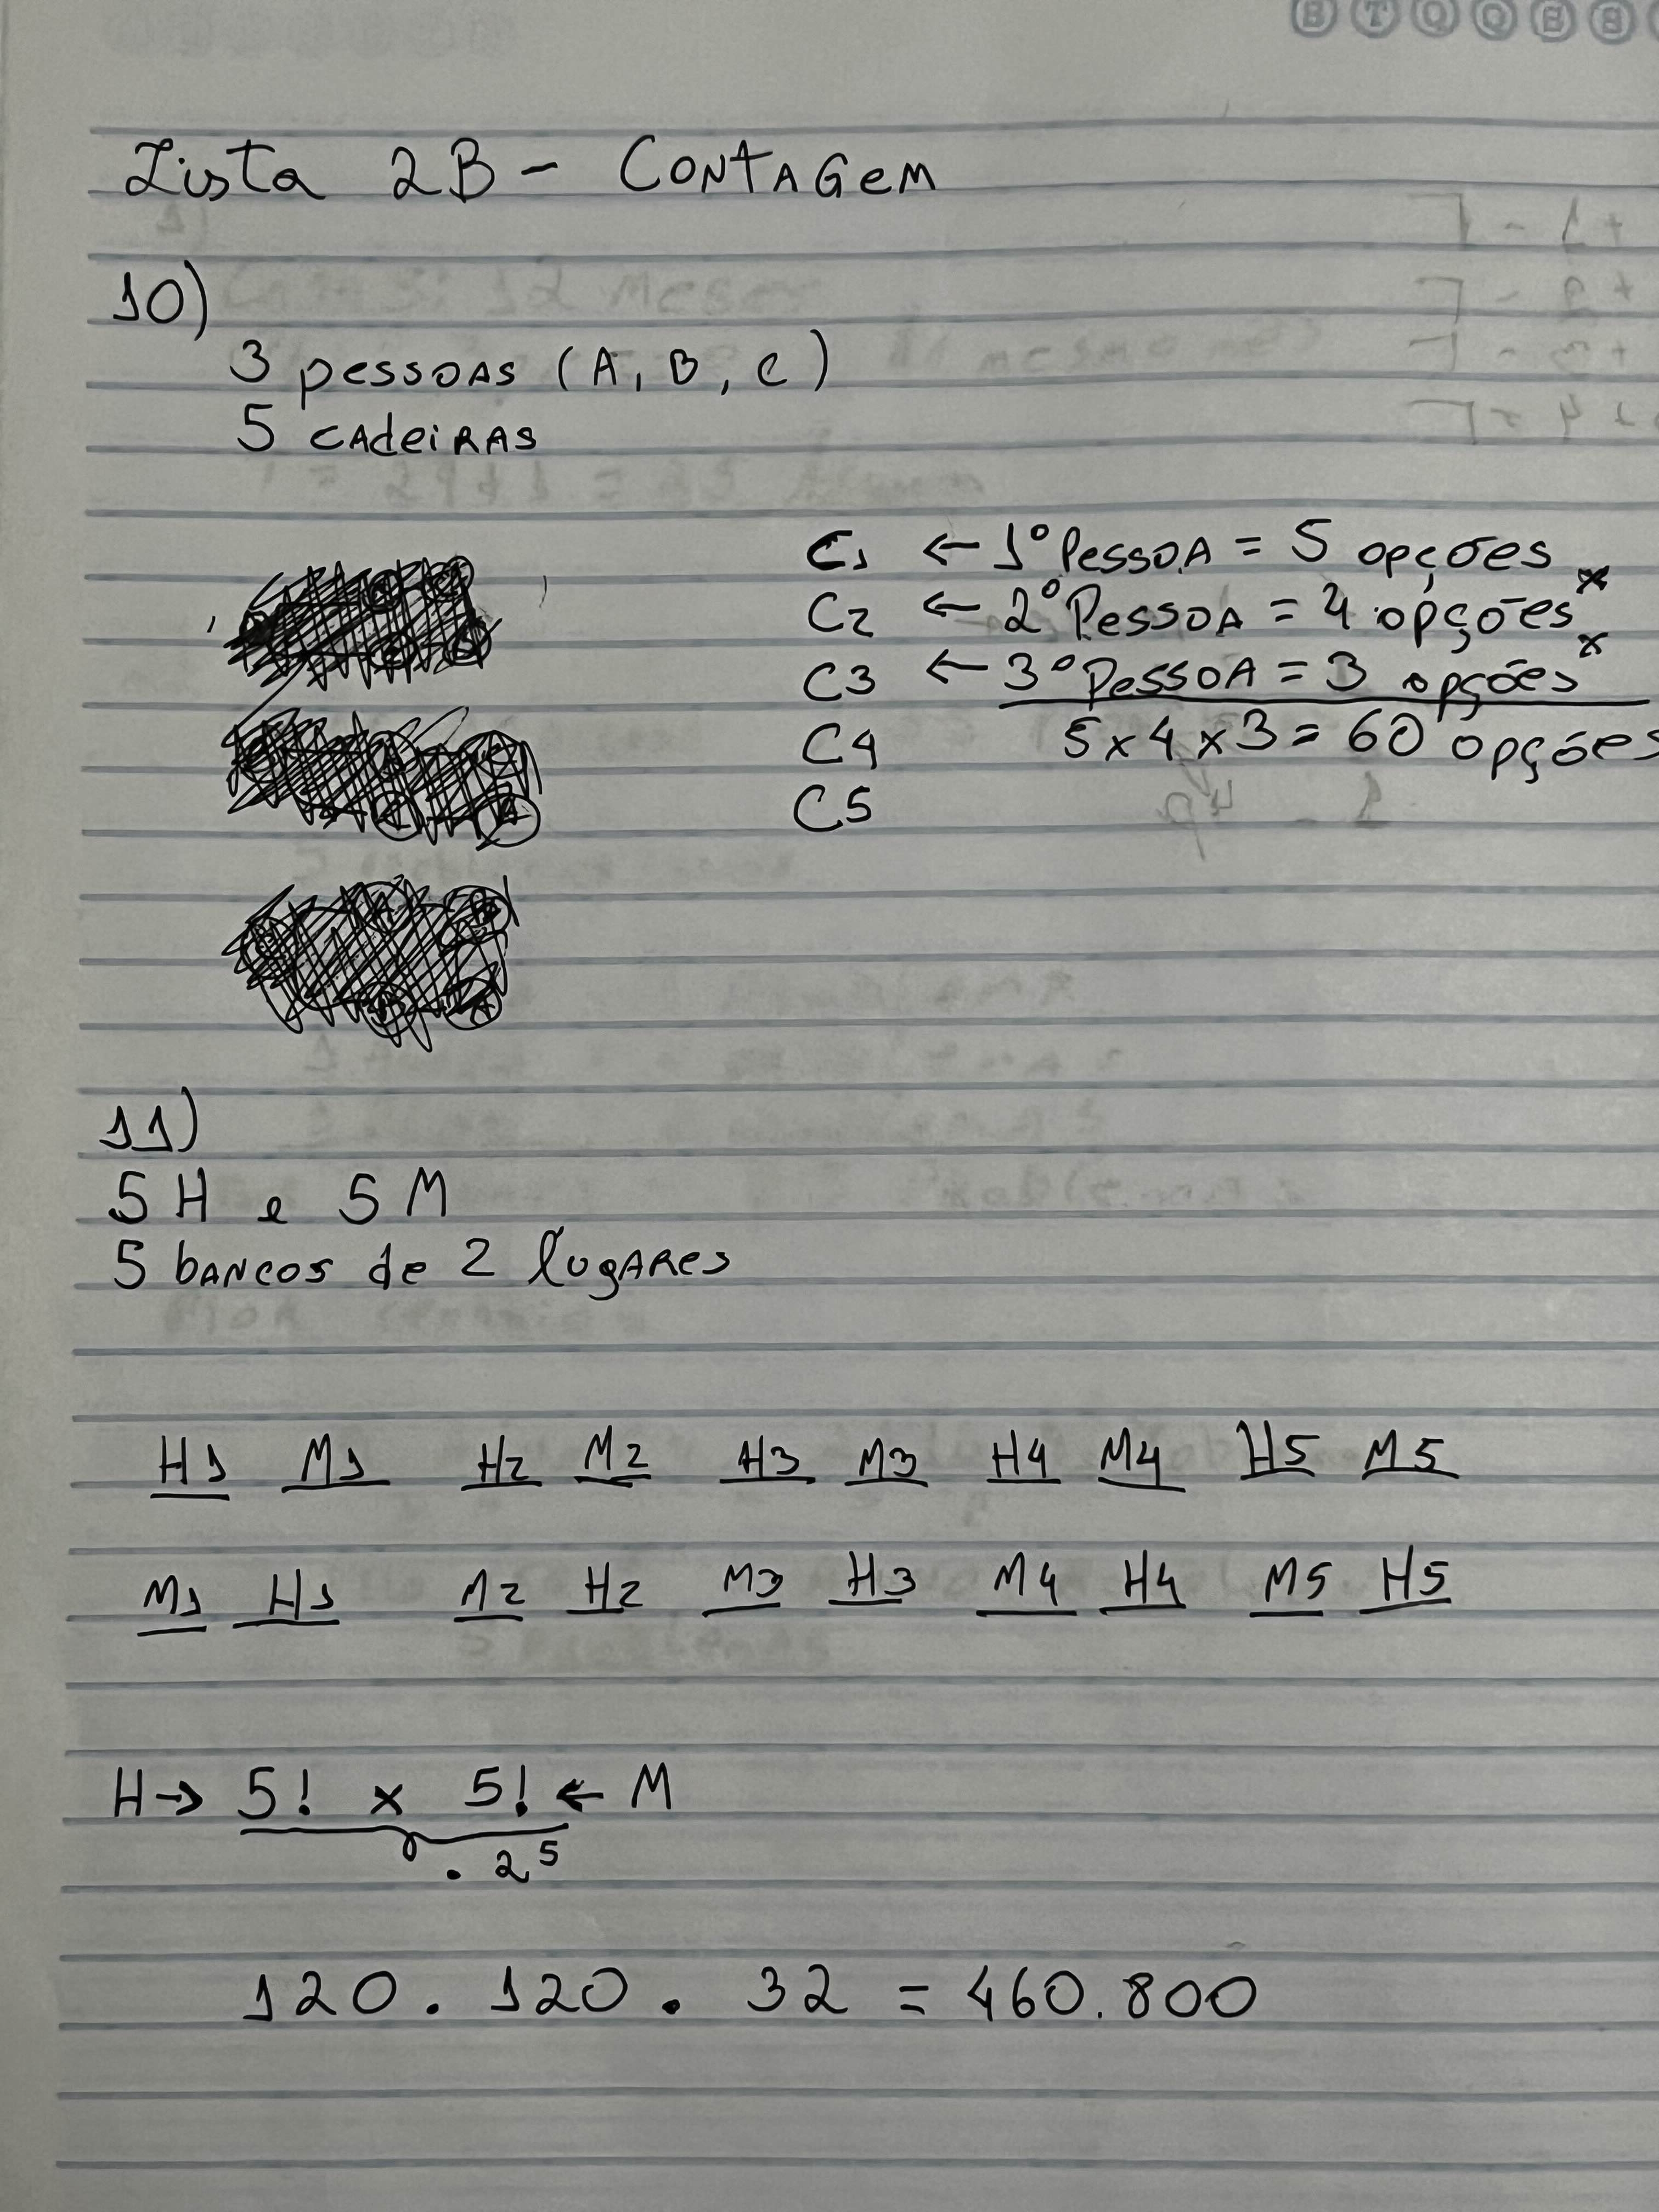 Lista 2B - Contagem
10)
3 pessoas (A, B, C)
5 cadeiras
C1 ← 1º Pessoa = 5 opções x
C2 ← 2º Pessoa = 4 opções x
C3 ← 3º Pessoa = 3 opções
C4 5 x 4 x 3 = 60 opções
C5
11)
5 H e 5 M
5 bancos de 2 lugares
H1 M1 H2 M2 H3 M3 H4 M4 H5 M5
M1 H1 M2 H2 M3 H3 M4 H4 M5 H5
H → 5! x 5! ← M
. 2⁵
120 . 120 . 32 = 460.800